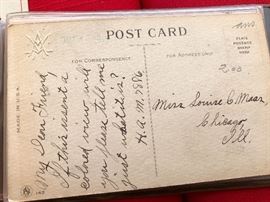 POST CARD
FOR CORRESPONDENCE
FOR ADDRESS ONLY
PLACE
POSTAGE
STAMP
HERE
MADE IN U.S.A.
My Dear Friend
If this wasent a
colored view will
you please tell me
just what it is?
H.A.M. 9806
Miss Louise C. Maas
Chicago,
Ill.